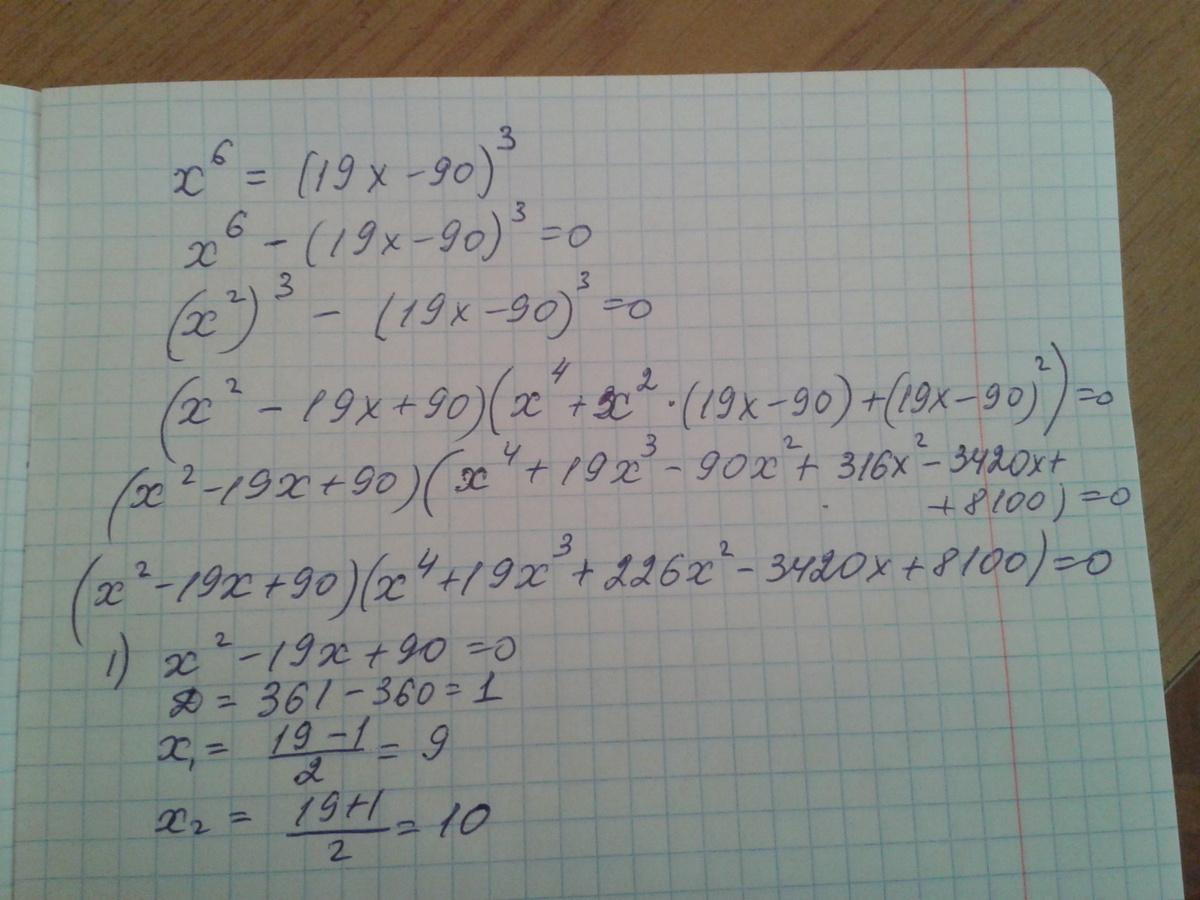 x⁶ = (19x - 90)³
x⁶ - (19x - 90)³ = 0
(x²)³ - (19x - 90)³ = 0
(x² - 19x + 90)(x⁴ + x² · (19x - 90) + (19x - 90)²) = 0
(x² - 19x + 90)(x⁴ + 19x³ - 90x² + 316x² - 3420x +
+ 8100) = 0
(x² - 19x + 90)(x⁴ + 19x³ + 226x² - 3420x + 8100) = 0
1) x² - 19x + 90 = 0
D = 361 - 360 = 1
x₁ = (19 - 1)/2 = 9
x₂ = (19 + 1)/2 = 10